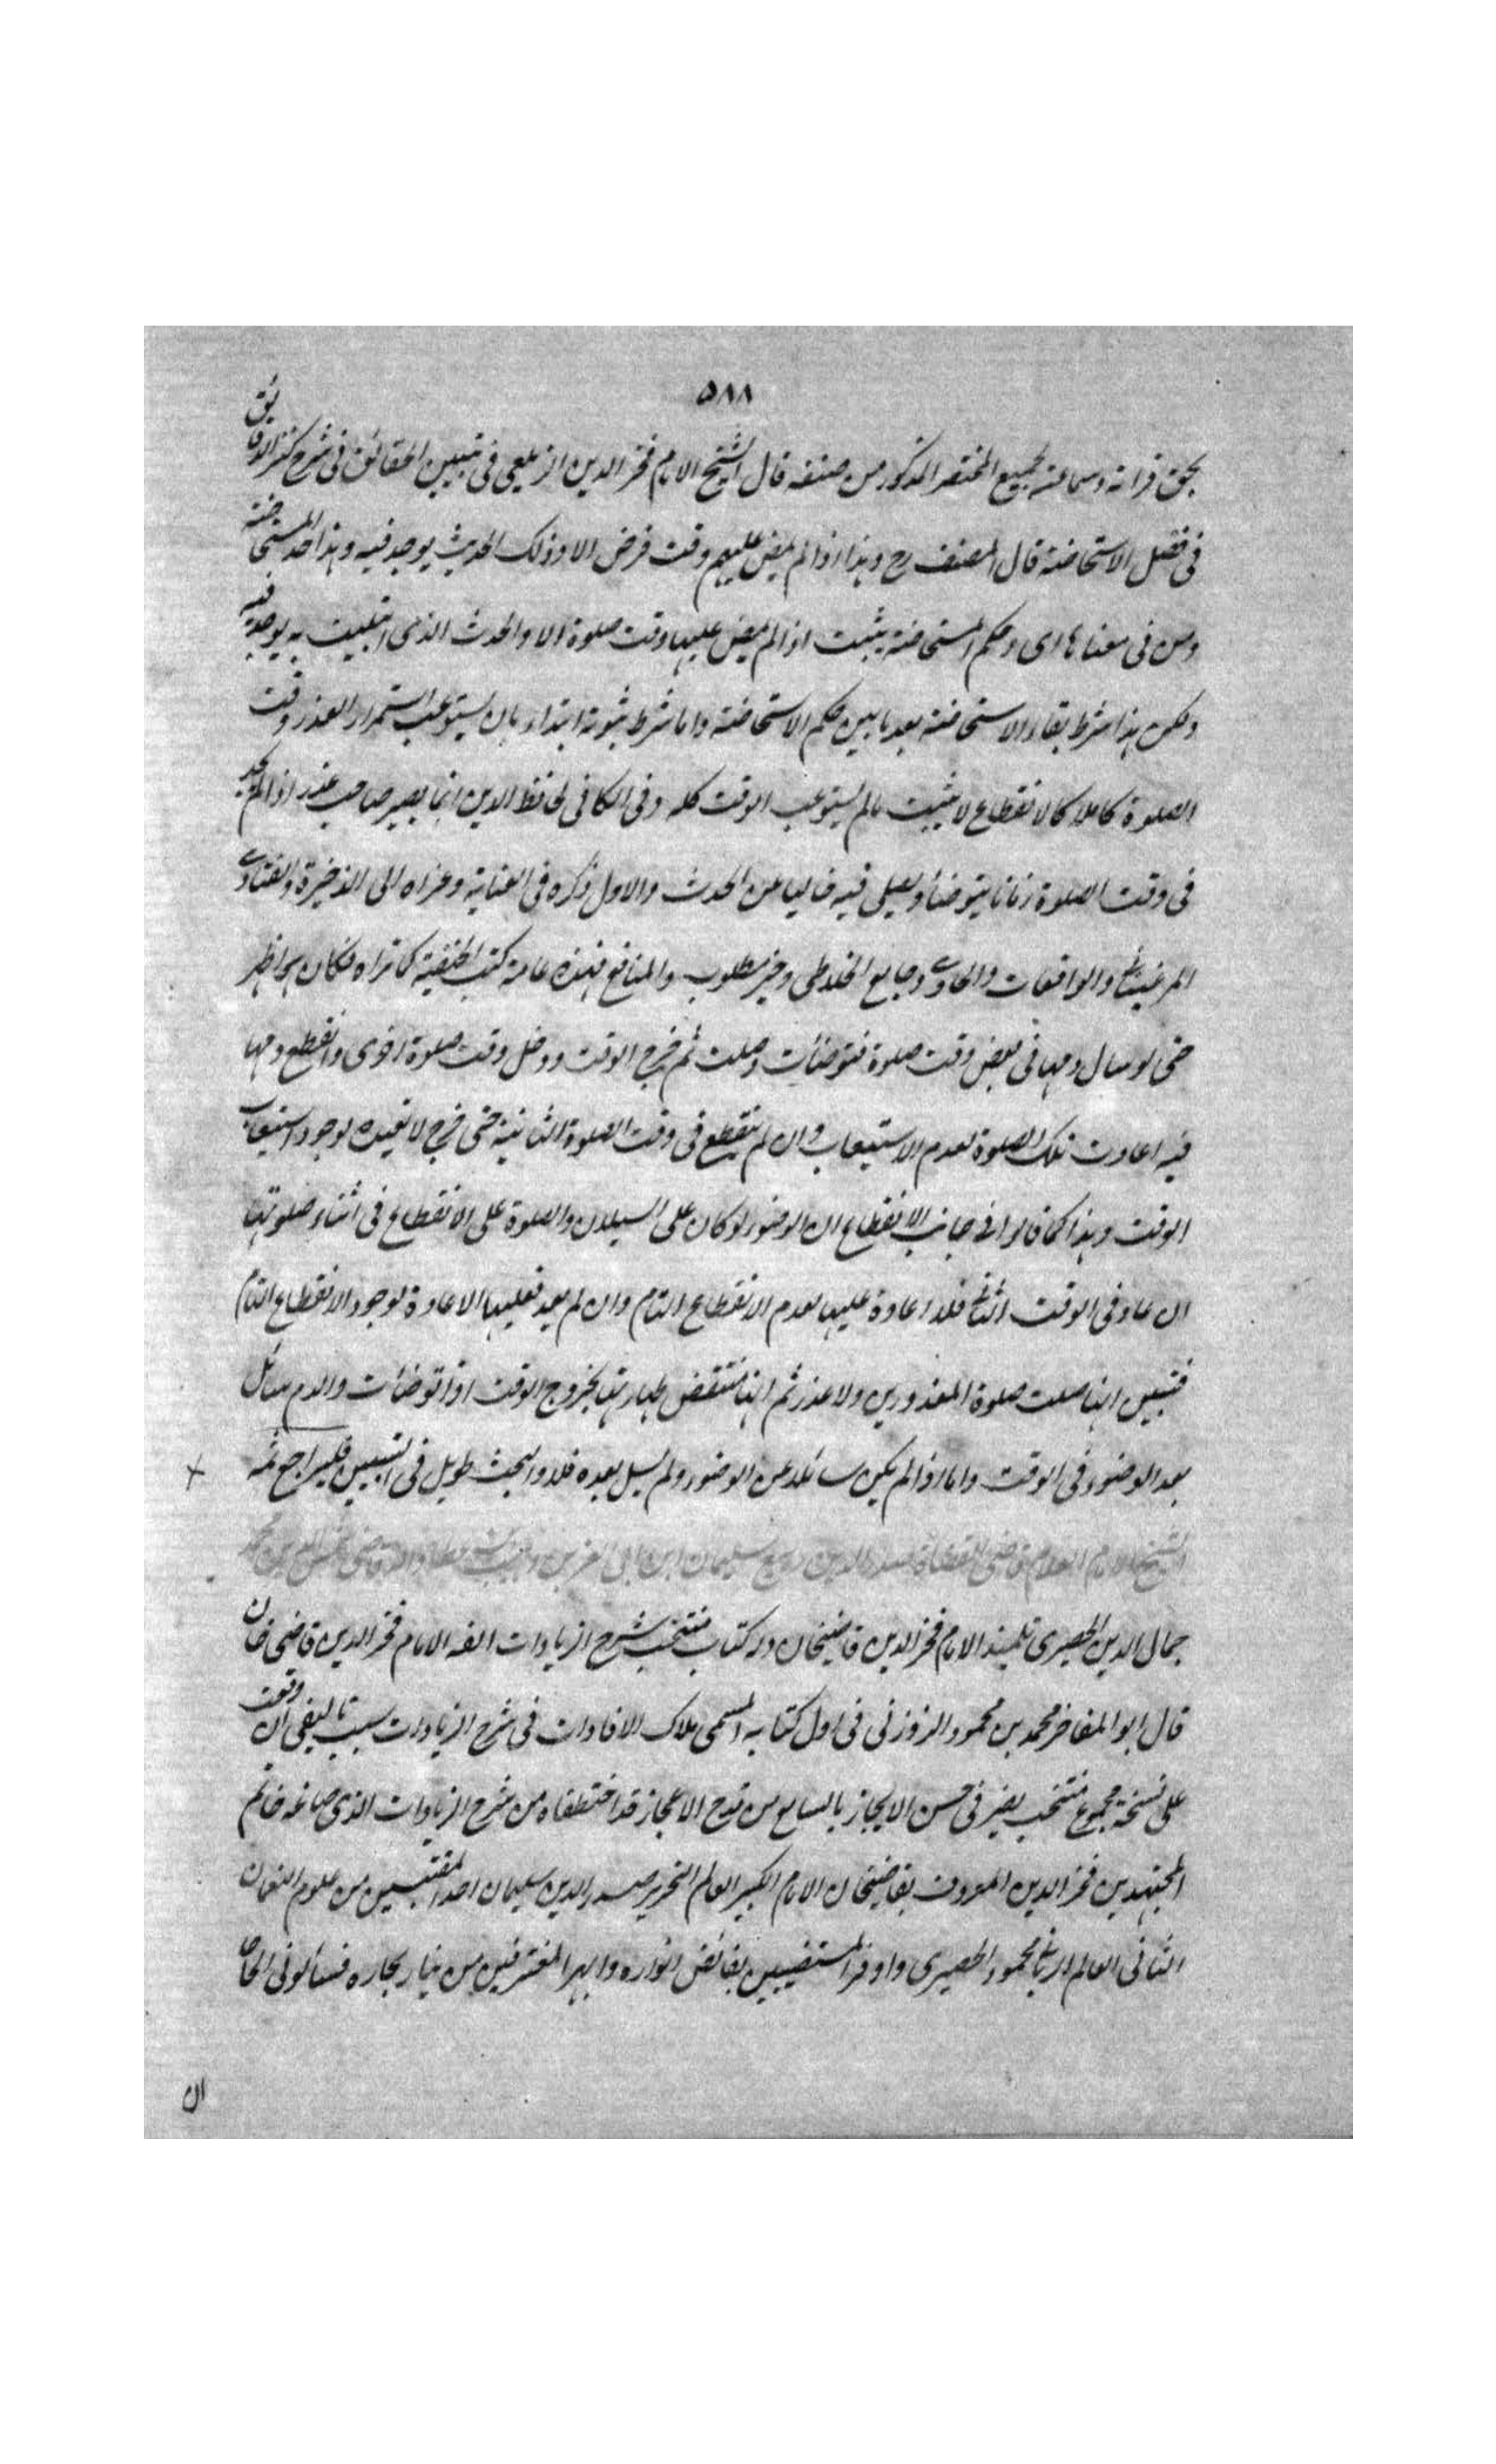 ٥٨٨
بحق قراءته وسماعته لجميع المختصر المذكور من مصنفه قال الشيخ الامام فخر الدين الزيلعي في تبيين الحقائق في شرح كنز الدقائق
في فصل الاستحاضة قال المصنف رح وهذا اذا لم يمض عليهم وقت فرض الا وذلك الحدث يوجد فيه وهذا حد المستحاضة
ومن في معناها اى وحكم المستحاضة يثبت اذا لم يمض عليها وقت صلوة الا والحدث الذى ابتليت به يوجد فيه
ولكن هذا شرط بقاء الاستحاضة بعد ما بين حكم الاستحاضة واما شرط ثبوته ابتداء بان يستوعب استمرار العذر وقت
الصلوة كاملا كالانقطاع لا يثبت مالم يستوعب الوقت كله وفى الكافى لحافظ الدين انما يصير صاحب عذر اذا لم يجد
فى وقت الصلوة زمانا يتوضأ ويصلى فيه خاليا عن الحدث والاول ذكره فى العناية وعزاه الى الذخيرة والفتاوى
المرغينانى والواقعات والحاوى وجامع الخلاطى وخير مطلوب والمنافع فهذه عامة كتب الحنفية كما تراه فكان هو اظهر
حتى لو سال دمها فى بعض وقت صلوة فتوضأت وصلت ثم خرج الوقت ودخل وقت صلوة اخرى وانقطع دمها
فيه اعادت تلك الصلوة لعدم الاستيعاب وان لم ينقطع فى وقت الصلوة الثانية حتى خرج لا تعيده لوجود استيعاب
الوقت وهذا كما قالوا فى جانب الانقطاع ان الوضوء لو كان على السيلان والصلوة على الانقطاع فى اثناء صلوتها
ان عاد فى الوقت الثانى فلا اعادة عليها لعدم الانقطاع التام وان لم يعد فعليها الاعادة لوجود الانقطاع التام
فتبين انها صلت صلوة المعذورين ولا عذر ثم انها تنتقض طهارتها بخروج الوقت اذا توضأت والدم سائل
بعد الوضوء فى الوقت واما اذا لم يكن سائلا عن الوضوء ولم يسل بعده فلا والبحث طويل فى التبيين فليراجع ثمه
الشيخ الامام العلام قاضى القضاة صدر الدين سليمان ابن ابى العز بن وهيب
جمال الدين الحصيرى تلميذ الامام فخر الدين قاضيخان در كتاب منتخب شرح الزيادات الفه الامام فخر الدين قاضى خان
قال ابو المفاخر محمد بن محمود الزوزنى فى اول كتابه المسمى ملاك الافادات فى شرح الزيادات سبب تاليفى ان وقعت
على نسخة مجموع منتخب يفز فى حسن الايجاز بالسابع من قدح الاعجاز قد اختطفاه من شرح الزيادات الذى صاغه خاتم
المجتهدين فخر الدين المعروف بقاضيخان الامام الكبير العالم النحرير صدر الدين سليمان احد المقتبسين من علوم النعمان
الثانى العالم الربانى محمود الحصيرى واوفر المستضيئين بفائض انواره وابهر المغترفين من تيار بحاره فسألونى
ان